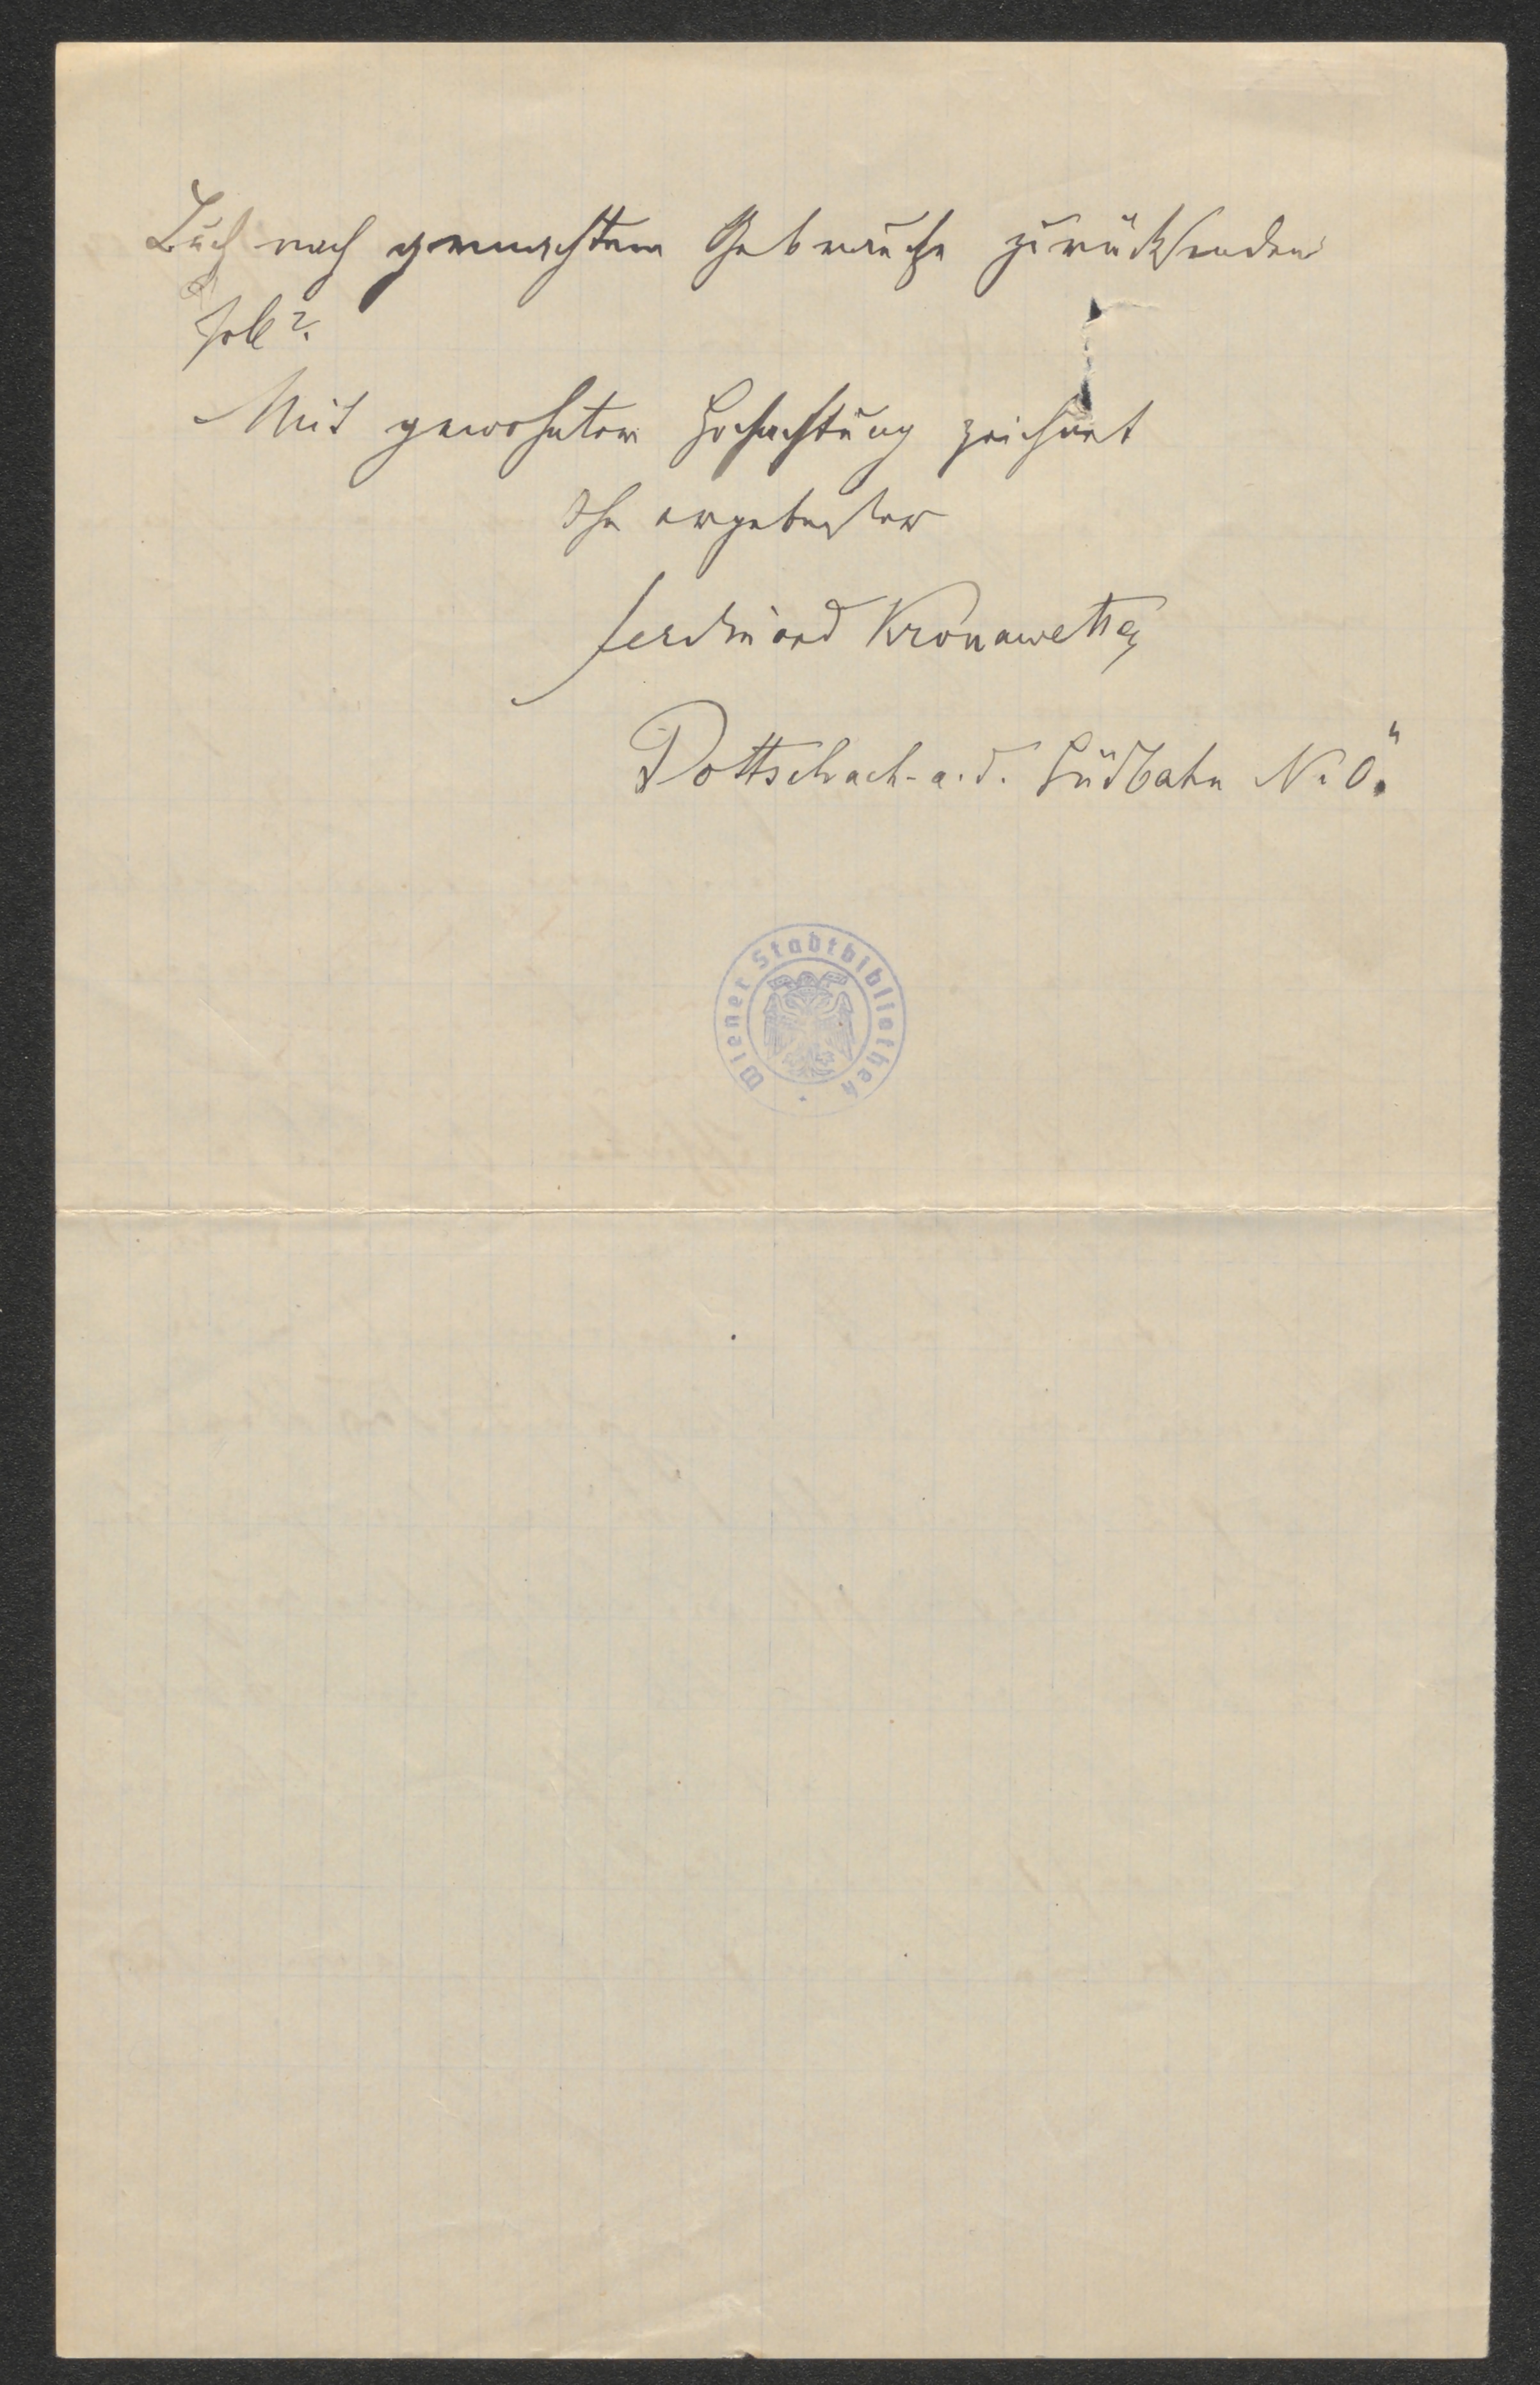 Buch nach gemachtem Gebrauche zurücksenden
soll?
Mit gewohnter Hochachtung zeichnet
Ihr ergebenster
Ferdinand Kronawetter
Pottschach a. d. Südbahn N. Ö.
Wiener Stadtbibliothek